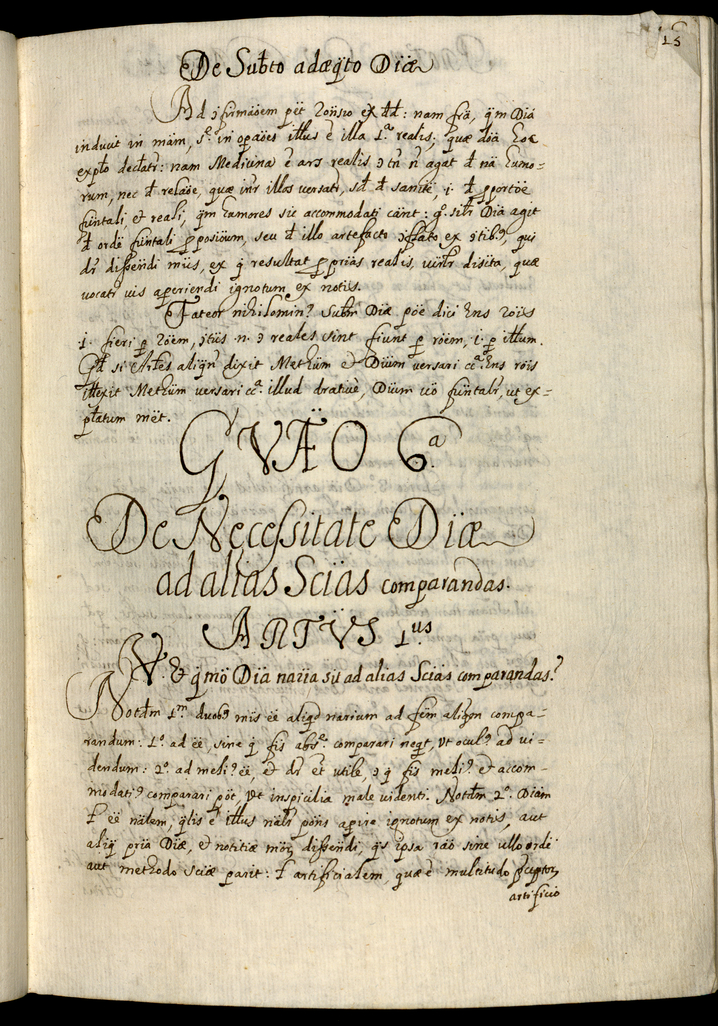 15
De Subto adæqto Diäe
Ad ↄfirmäoem pët Zoñsio ex dd: nam frä, qm Diä
induit in mäm, sª. in opäoes illius ë illa 1.ª realis, quæ döä hoc
explto declatr: nam Medicina ë ars realis ↄ tñ ñ agat d nä humo-
rum, nec d reläoe, quæ intr illos versatr, sd d sanitë, i. d pportöe
fūntali, et reali, qm humores sic accommodati cänt: gº. silr Diä agit
d ordë fūntali pposiöum, seu d illo artefacto ↄflato ex ↄtibꝰ, qui
dr dissendi müs, ex q resultat pprias realis, virtlr disita, quæ
vocatr vis aperiendi ignotum ex notis.
Fateor nihilominꝰ Subtm Diæ pöe dici ens röüs
i. fieri p röem, ↄtüs n. ↄ reales sint fiunt p röem, i. p illum.
Qd si Artes aliqn dixit Methüm et Diüm versari ccª ens röis
itllexit Methüm versari ccª. illud drativë, Diüm vëo fūntalr, ut ex-
pltatum mët.
QVÆO 6ª
De Necessitate Diäe
ad alias Sciäs comparandas.
ARTVS 1us
V. Et qmö Diä naria sit ad alias Sciäs comparandas?
Notdm 1m duobꝰ müs ëe aliqd narium ad fëm aliqm compa-
randum: 1º. ad ëe, sine q fis absª. comparari neqt, ut oculꝰ ad vi-
dendum: 2º. ad meliꝰ ëe, et dr ët utile, ↄ q fis meliꝰ et accom-
modatiꝰ comparari pöt, ut inspicilia male videnti. Notdm 2º. Diäm
ł ëe nälem, qlis ë illius nälr pöñs aperire ignotum ex notis, aut
aliq priä Diæ, et notitiæ mör dissendi, qs ipsa räo sine ullo ordë
aut methodo sciæ parit: ł artificialem, quæ ë multitudo pceptor
artificio